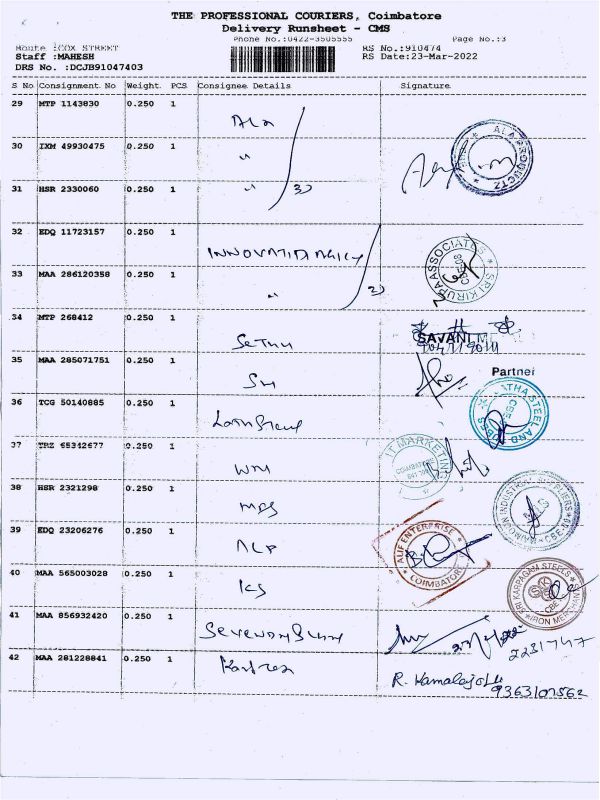 THE PROFESSIONAL COURIERS, Coimbatore
Delivery Runsheet - CMS
Phone No.:0422-3505555 Page No.:3
Route :COX STREET RS No.:910474
Staff :MAHESH RS Date:23-Mar-2022
DRS No. :DCJB91047403
S No Consignment No Weight PCS Consignee Details Signature
29 MTP 1143830 0.250 1
Ala
30 IXM 49930475 0.250 1
"
31 HSR 2330060 0.250 1
" 3
ALA PRODUCTZ
32 EDQ 11723157 0.250 1
33 MAA 286120358 0.250 1
"
SRI KIRUBA ASSOCIATES
34 MTP 268412 0.250 1
SAVANI
35 MAA 285071751 0.250 1
Partner
36 TCG 50140885 0.250 1
STEEL AND
CBE
37 TRZ 65342677 0.250 1
IT MARKETING
COIMBATORE
38 HSR 2321298 0.250 1
INDUSTRIAL SUPPLIERS
39 EDQ 23206276 0.250 1
ALP
ALIF ENTERPRISE
COIMBATORE
40 MAA 565003028 0.250 1
KS
SRI KARPAGAM STEELS
IRON MERCHANT
41 MAA 856932420 0.250 1
2231747
42 MAA 281228841 0.250 1
9363107562